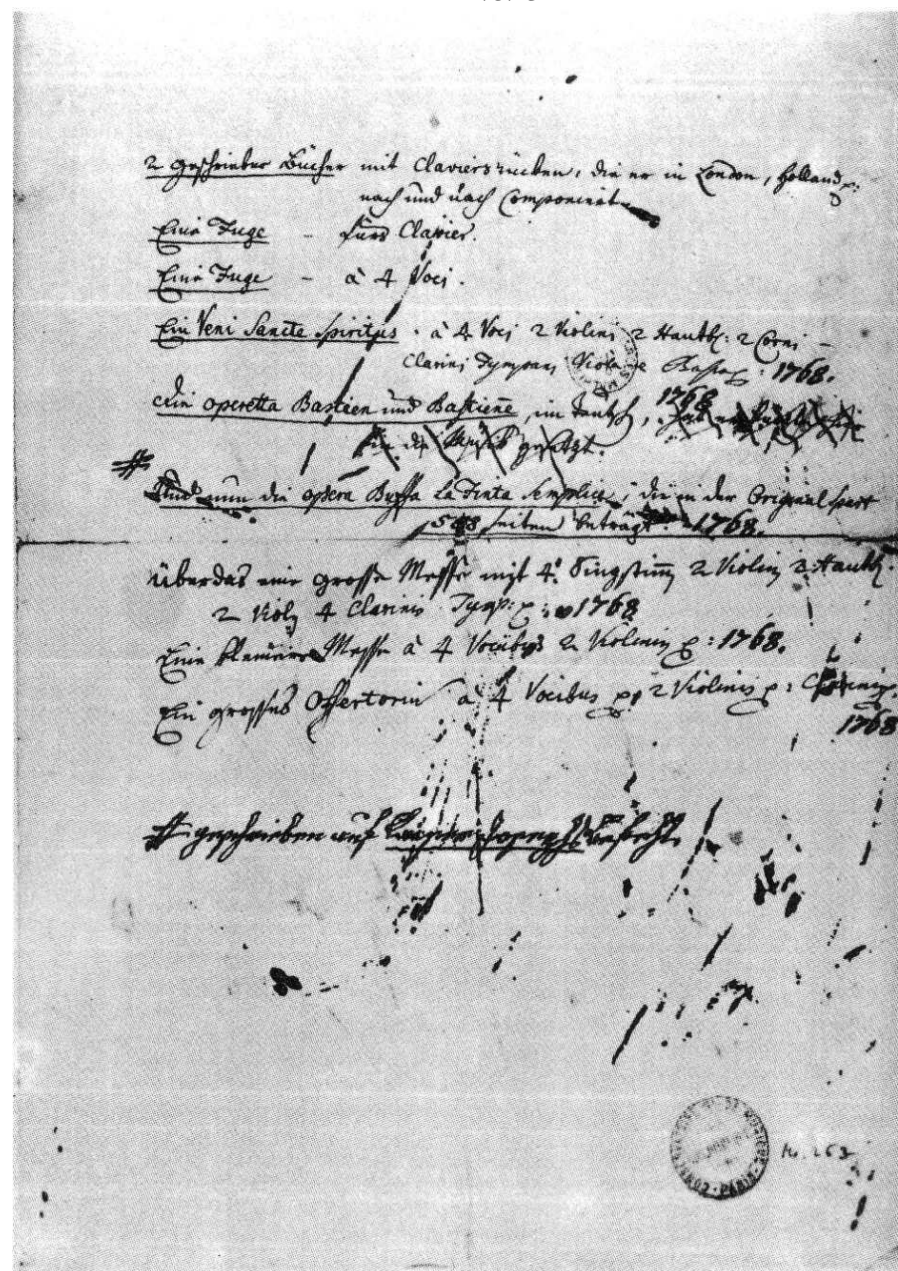 2 geschriebene Bücher mit Clavierstücken, die er in London, Holland p:
nach und nach Componiert.
Eine Fuge – fürs Clavier.
Eine Fuge – à 4 Voci.
Ein Veni Sancte Spiritus à 4 Voci 2 Violini 2 Hautb: 2 Corni –
Clarini Tympani, Viola e Basso p: 1768.
die operetta Bastien und Bastiene, im teutsch, 1768
in die Musik gesetzt.
# Und nun die opera Buffa La Finta Semplice, die in der Original spart
558 seiten beträgt 1768.
überdas eine grosse Messe mit 4. Singstimm 2 Violin, 2. Hautb.
2 Viole 4 Clarini Tymp: p: 1768
Eine kleinere Messe à 4 Vocibus 2 Violinis p: 1768.
Ein grosses Offertorium à 4 Vocibus p, 2 Violinis p: Clarini p.
1768
# geschrieben auf Kayser Josephs Befehl.
CONSERVATOIRE DE MUSIQUE PARIS
N. 263